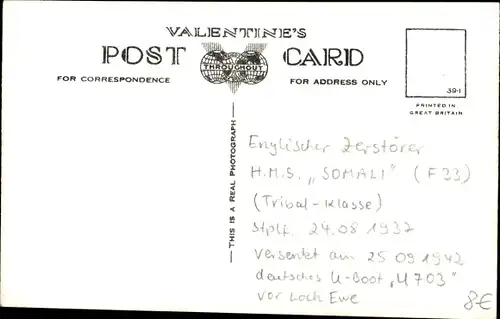 VALENTINE'S
POST CARD
THROUGHOUT
FOR CORRESPONDENCE
FOR ADDRESS ONLY
39-1
PRINTED IN
GREAT BRITAIN
THIS IS A REAL PHOTOGRAPH
Englischer Zerstörer
H.M.S. „SOMALI" (F 33)
(Tribal-Klasse)
Stplf. 24.08 1937
versenkt am 25 09 1942
deutsches U-Boot „U 703"
vor Loch Ewe
8€